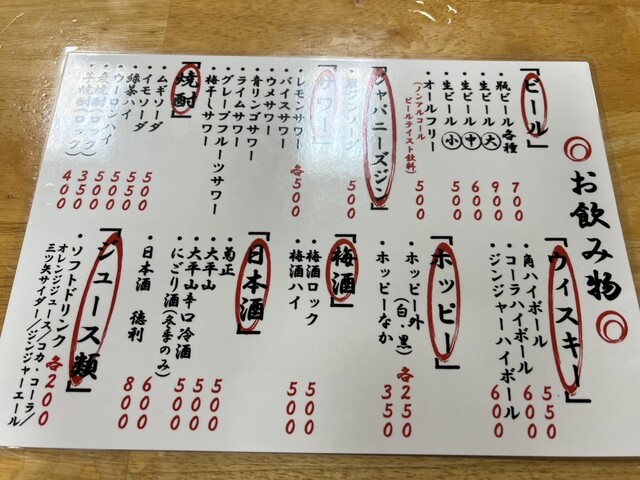 お飲み物
「ビール」
・瓶ビール各種 700
・生ビール(大) 900
・生ビール(中) 600
・生ビール(小) 500
・オールフリー 500
(ノンアルコール
ビールテイスト飲料)
「ジャパニーズジン」
ジンソーダ 500
「サワー」
・レモンサワー 各500
・バイスサワー
・ウメサワー
・青リンゴサワー
・ライムサワー
・グレープフルーツサワー
・梅干しサワー
「焼酎」
・ムギソーダ 500
・イモソーダ
・緑茶ハイ
・ウーロンハイ
焼酎(ロック) 350
・芋焼酎(ロック) 400
「ウィスキー」
・角ハイボール 550
・コーラハイボール 600
・ジンジャーハイボール 600
「ホッピー」
・ホッピー外(白・黒) 各250
・ホッピーなか 350
「梅酒」
・梅酒ロック 500
・梅酒ハイ 500
「日本酒」
・菊正
・大平山 500
・大平山辛口冷酒 500
・にごり酒(冬季のみ) 500
・日本酒 徳利 600
800
「ジュース類」
・ソフトドリンク 各200
オレンジジュース/コカ・コーラ/
三ツ矢サイダー/ジンジャーエール